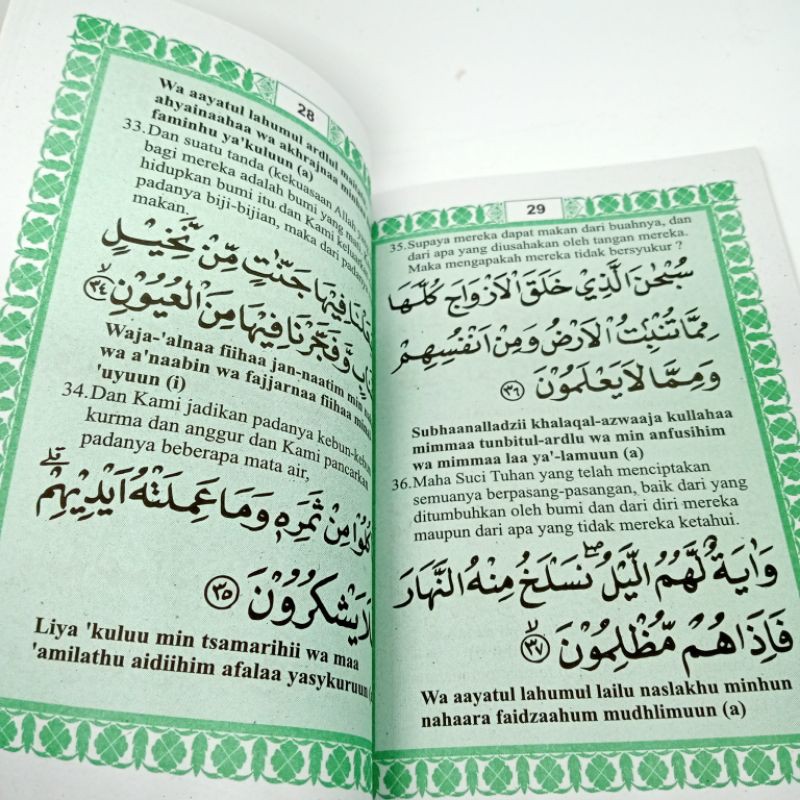 28
Wa aayatul lahumul ardlul
ahyainaahaa wa akhrajnaa minhaa
faminhu ya'kuluun (a)
33.Dan suatu tanda (kekuasaan Allah yang
bagi mereka adalah bumi yang mati.
hidupkan bumi itu dan Kami keluarkan
padanya biji-bijian, maka dari padanya
makan.
فِيْهَا جَنّٰتٍ مِّنْ نَّخِيْلٍ
وَّفَجَّرْنَا فِيْهَا مِنَ الْعُيُوْنِۙ ٣٤
Waja-'alnaa fiihaa jan-naatim min
wa a'naabin wa fajjarnaa fiihaa minal
'uyuun (i)
34.Dan Kami jadikan padanya kebun-kebun
kurma dan anggur dan Kami pancarkan
padanya beberapa mata air,
مِنْ ثَمَرِهٖ وَمَا عَمِلَتْهُ اَيْدِيْهِمْۗ
يَشْكُرُوْنَ ٣٥
Liya 'kuluu min tsamarihii wa maa
'amilathu aidiihim afalaa yasykuruun
29
35.Supaya mereka dapat makan dari buahnya, dan
dari apa yang diusahakan oleh tangan mereka.
Maka mengapakah mereka tidak bersyukur ?
سُبْحٰنَ الَّذِيْ خَلَقَ الْاَزْوَاجَ كُلَّهَا
مِمَّا تُنْبِتُ الْاَرْضُ وَمِنْ اَنْفُسِهِمْ
وَمِمَّا لَا يَعْلَمُوْنَ ٣٦
Subhaanalladzii khalaqal-azwaaja kullahaa
mimmaa tunbitul-ardlu wa min anfusihim
wa mimmaa laa ya'-lamuun (a)
36.Maha Suci Tuhan yang telah menciptakan
semuanya berpasang-pasangan, baik dari yang
ditumbuhkan oleh bumi dan dari diri mereka
maupun dari apa yang tidak mereka ketahui.
وَاٰيَةٌ لَّهُمُ الَّيْلُ ۖ نَسْلَخُ مِنْهُ النَّهَارَ
فَاِذَا هُمْ مُّظْلِمُوْنَۙ ٣٧
Wa aayatul lahumul lailu naslakhu minhun
nahaara faidzaahum mudhlimuun (a)